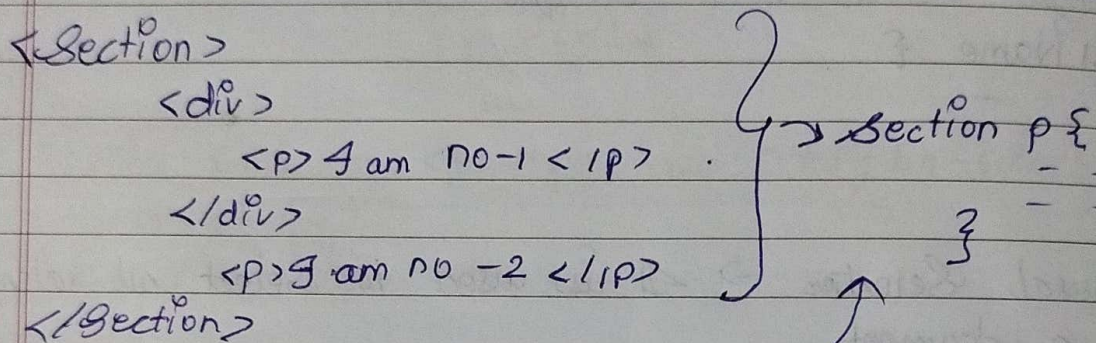 <section>
<div>
<p> I am no-1 </p>
</div>
<p> I am no-2 </p>
</section>
section p {
- -
- -
}